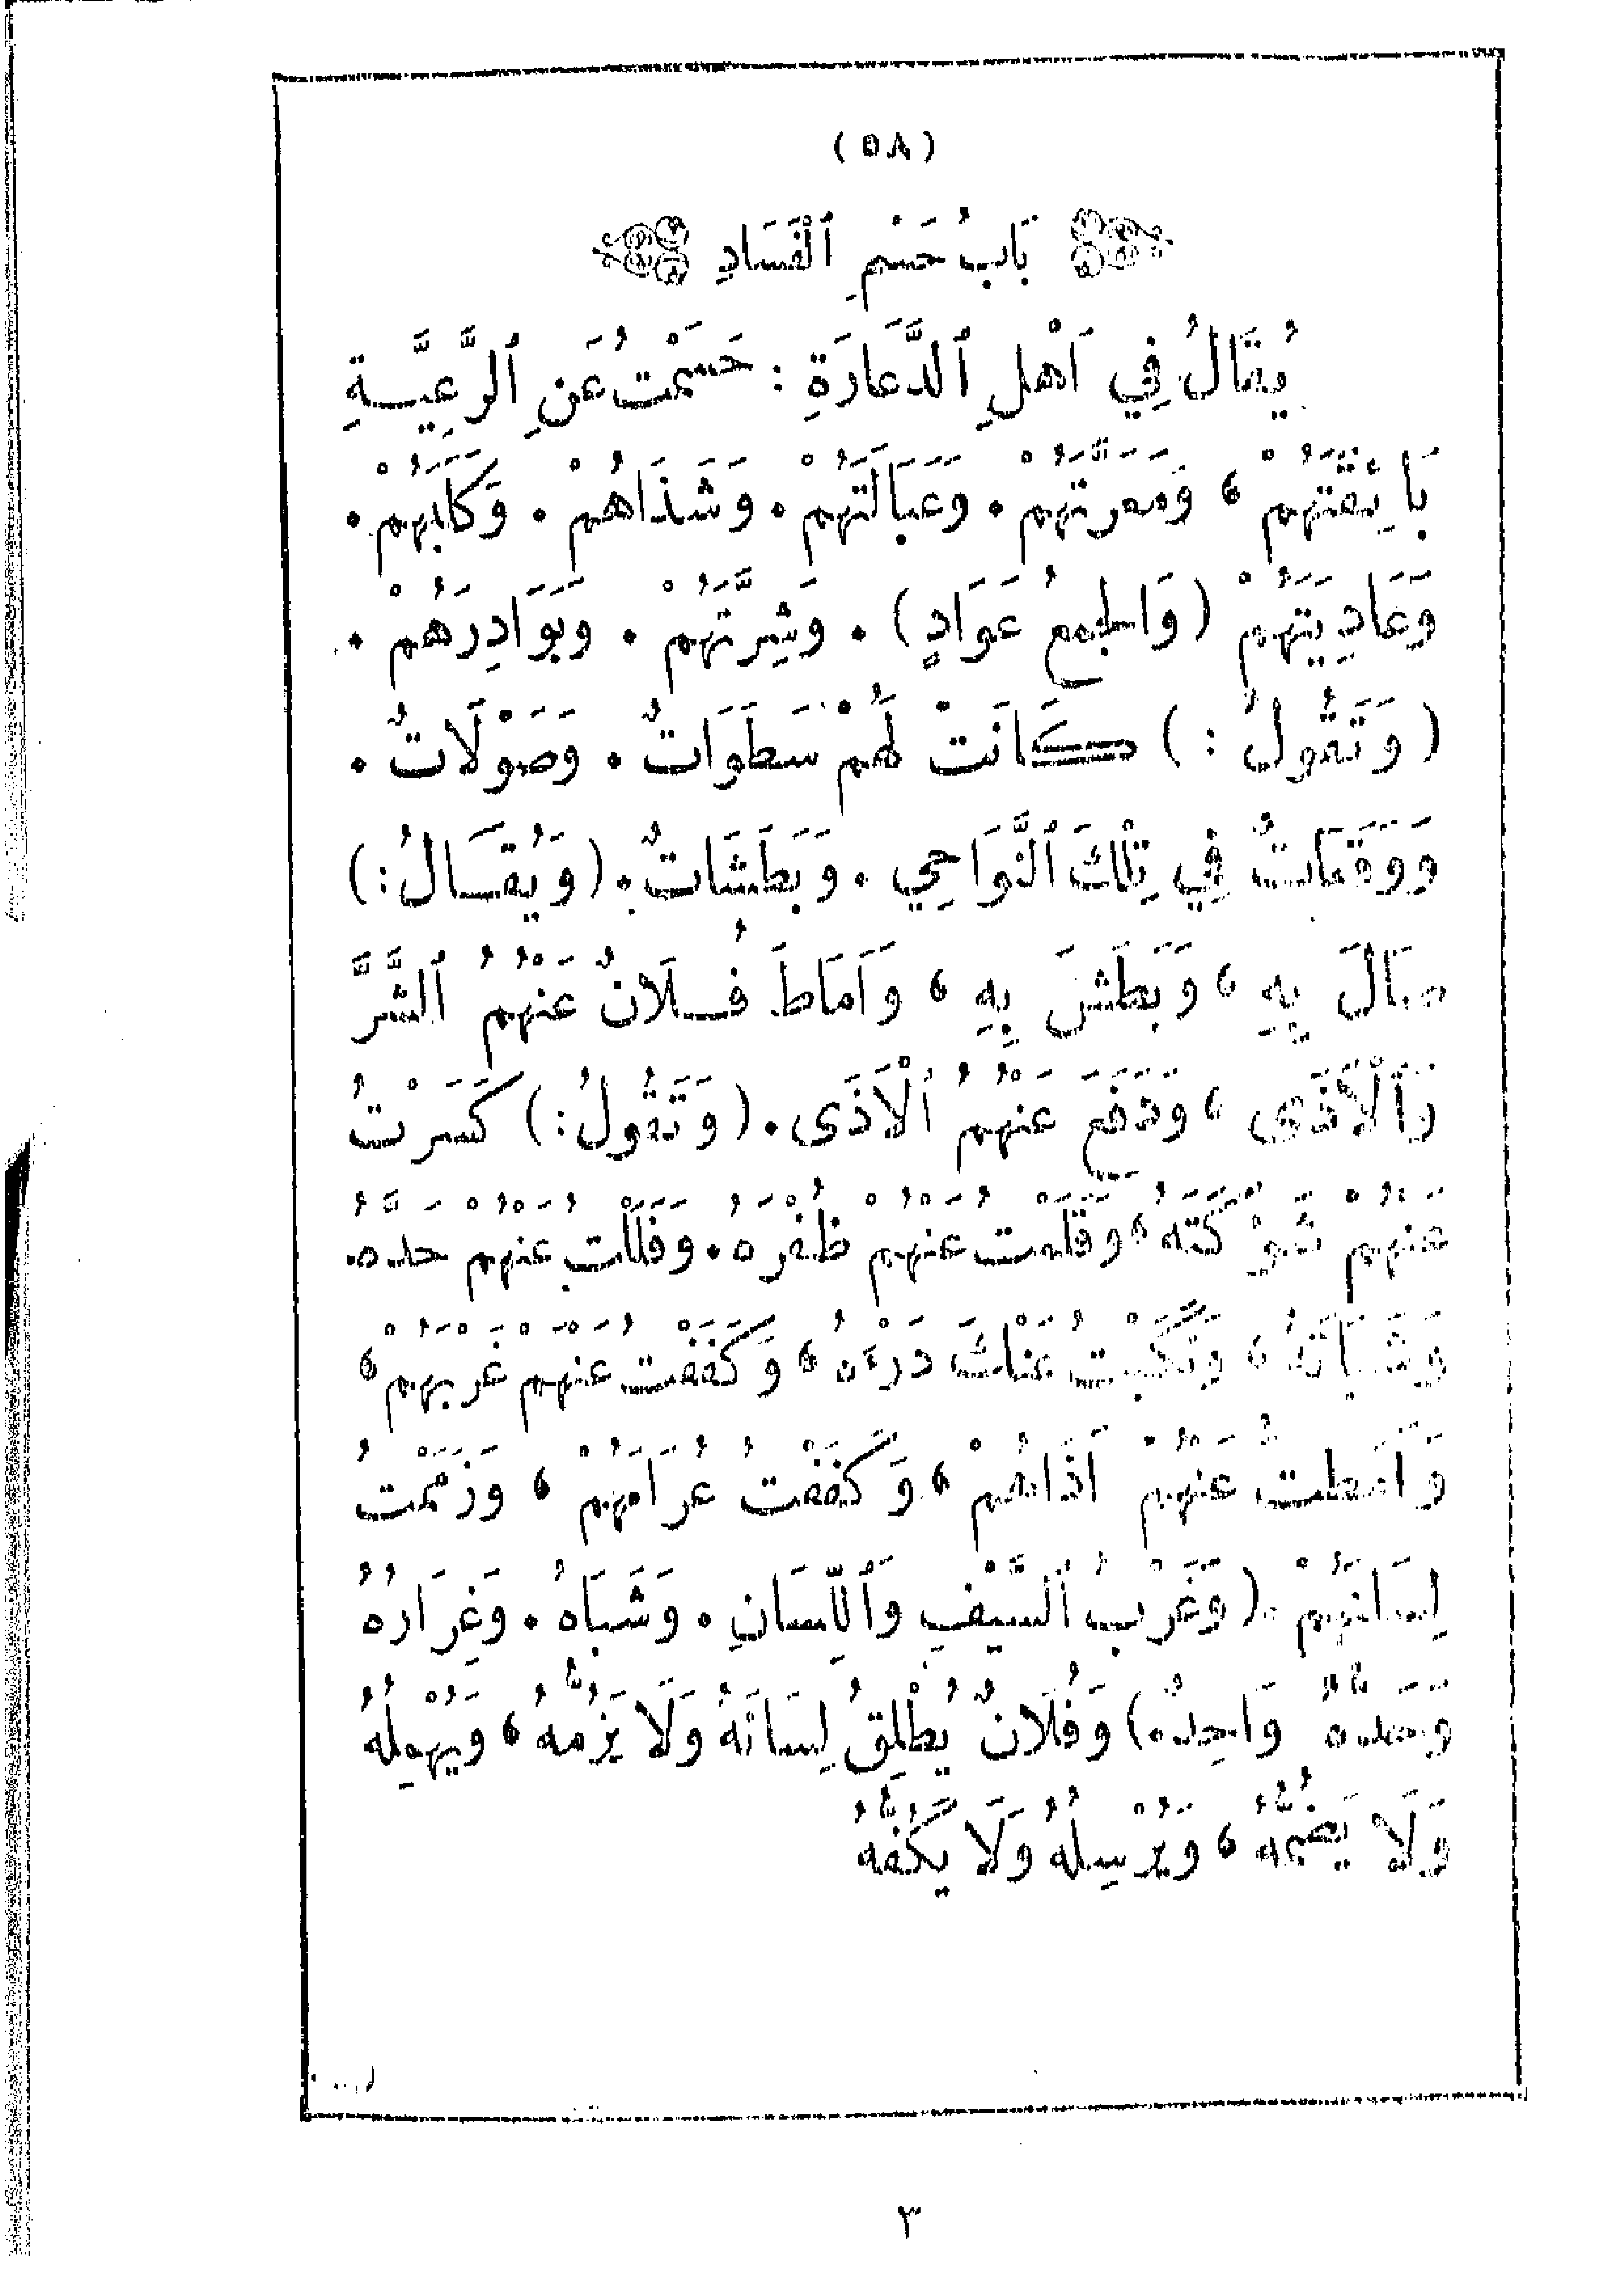 (٥٨)
بَابُ حَسْمِ ٱلْفَسَادِ
يُقَالُ فِي اَهْلِ ٱلدَّعَارَةِ : حَسَمْتُ عَنِ ٱلرَّعِيَّةِ
بَائِقَتَهُمْ ، وَمَعَرَّتَهُمْ . وَعَبَالَتَهُمْ . وَشَذَاهُمْ . وَكَلَبَهُمْ .
وَعَادِيَتَهُمْ (وَالجمعُ عَوَادٍ) . وَشِرَّتَهُمْ . وَبَوَادِرَهُمْ .
(وَتَقُولُ :) كَانَتْ لَهُمْ سَطَوَاتٌ . وَصَوْلَاتٌ .
وَوَقَعَاتٌ فِي تِلْكَ ٱلنَّوَاحِي . وَبَطَشَاتٌ . (وَيُقَالُ :)
صَالَ بِهِ ، وَبَطَشَ بِهِ ، وَاَمَاطَ فُلَانٌ عَنْهُمُ ٱلشَّرَّ
وَٱلْاَذَى ، وَدَفَعَ عَنْهُمُ ٱلْاَذَى . (وَتَقُولُ :) كَسَرْتُ
عَنْهُمْ شَوْكَتَهُ ، وَقَلَمْتُ عَنْهُمْ ظُفْرَهُ . وَفَلَلْتُ عَنْهُمْ حَدَّهُ .
وَشَبَاتَهُ ، وَنَكَّبْتُ عَنْكَ دَرْءَهُ ، وَكَفَفْتُ عَنْهُمْ غَرْبَهُمْ ،
وَاَمَطتُ عَنْهُمْ اَذَاهُمْ ، وَكَفَفْتُ عُرَامَهُمْ ، وَزَمَمْتُ
لِسَانَهُمْ . (وَغَرْبُ ٱلسَّيْفِ وَٱللِّسَانِ . وَشَبَاهُ . وَغِرَارُهُ
وَحَدُّهُ وَاحِدٌ .) وَفُلَانٌ يُطْلِقُ لِسَانَهُ وَلَا يَزُمُّهُ ، وَيُهْمِلُهُ
وَلَا يَضُمُّهُ ، وَيُرْسِلُهُ وَلَا يَكُفُّهُ
٣